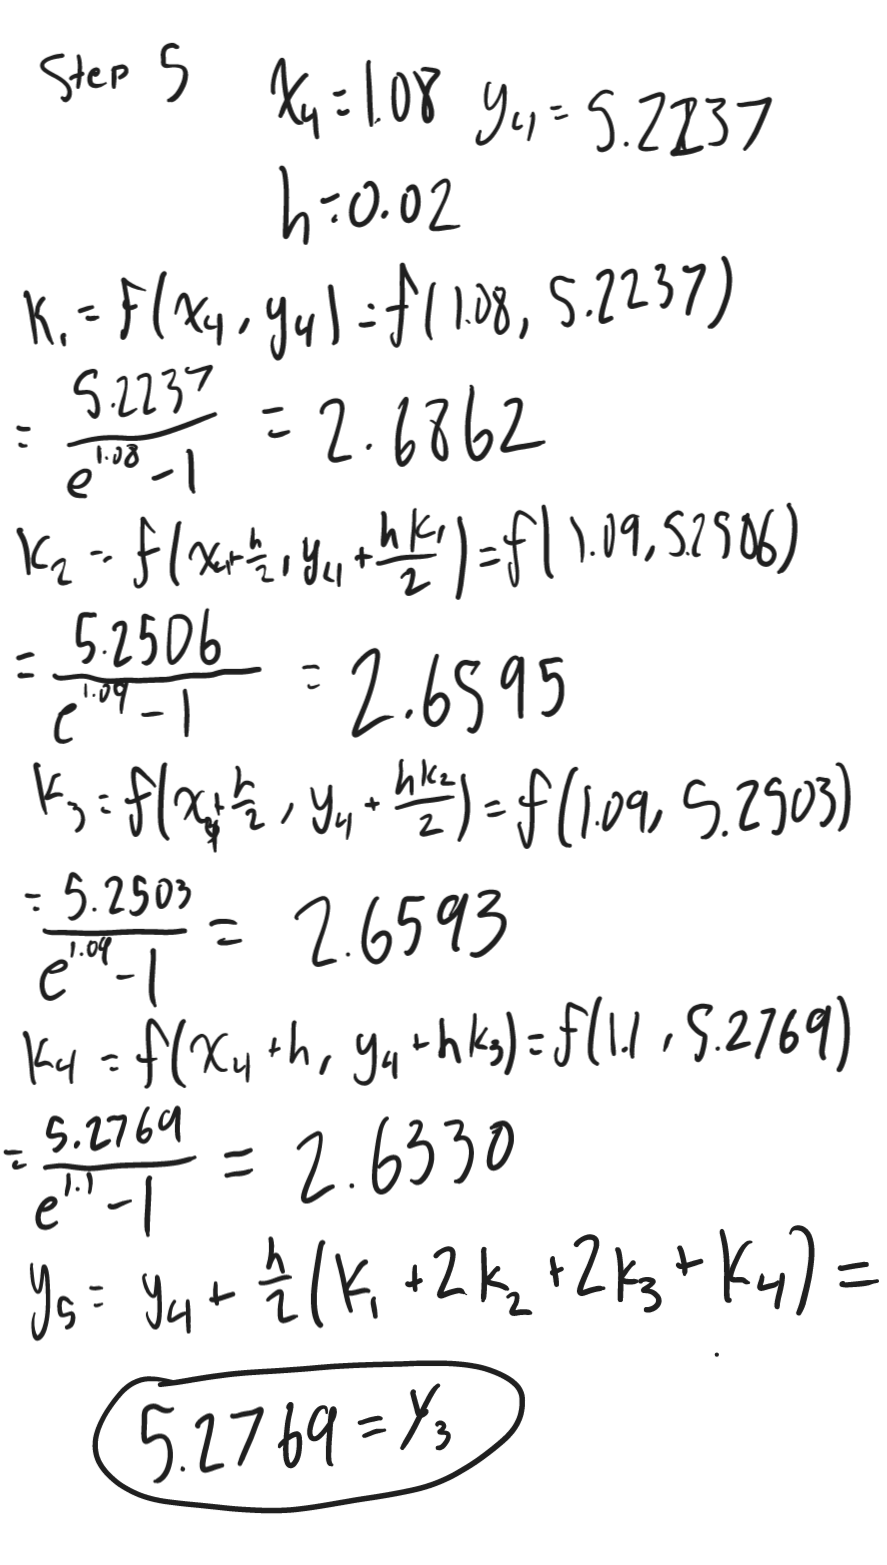 Step 5 x₄=1.08 y₄=5.2237
h=0.02
K₁=f(x₄,y₄)=f(1.08, 5.2237)
= 5.2237/(e^1.08 -1) = 2.6862
K₂ = f(x₄+h/2, y₄+hk₁/2)=f(1.09,5.2506)
= 5.2506/(e^1.09 -1) = 2.6595
K₃ = f(x₄+h/2, y₄+hk₂/2)=f(1.09, 5.2503)
= 5.2503/(e^1.09 -1) = 2.6593
K₄ = f(x₄+h, y₄+hk₃)=f(1.1, 5.2769)
= 5.2769/(e^1.1 -1) = 2.6330
y₅ = y₄ + h/2(K₁+2k₂+2k₃+K₄) =
5.2769=Y₃